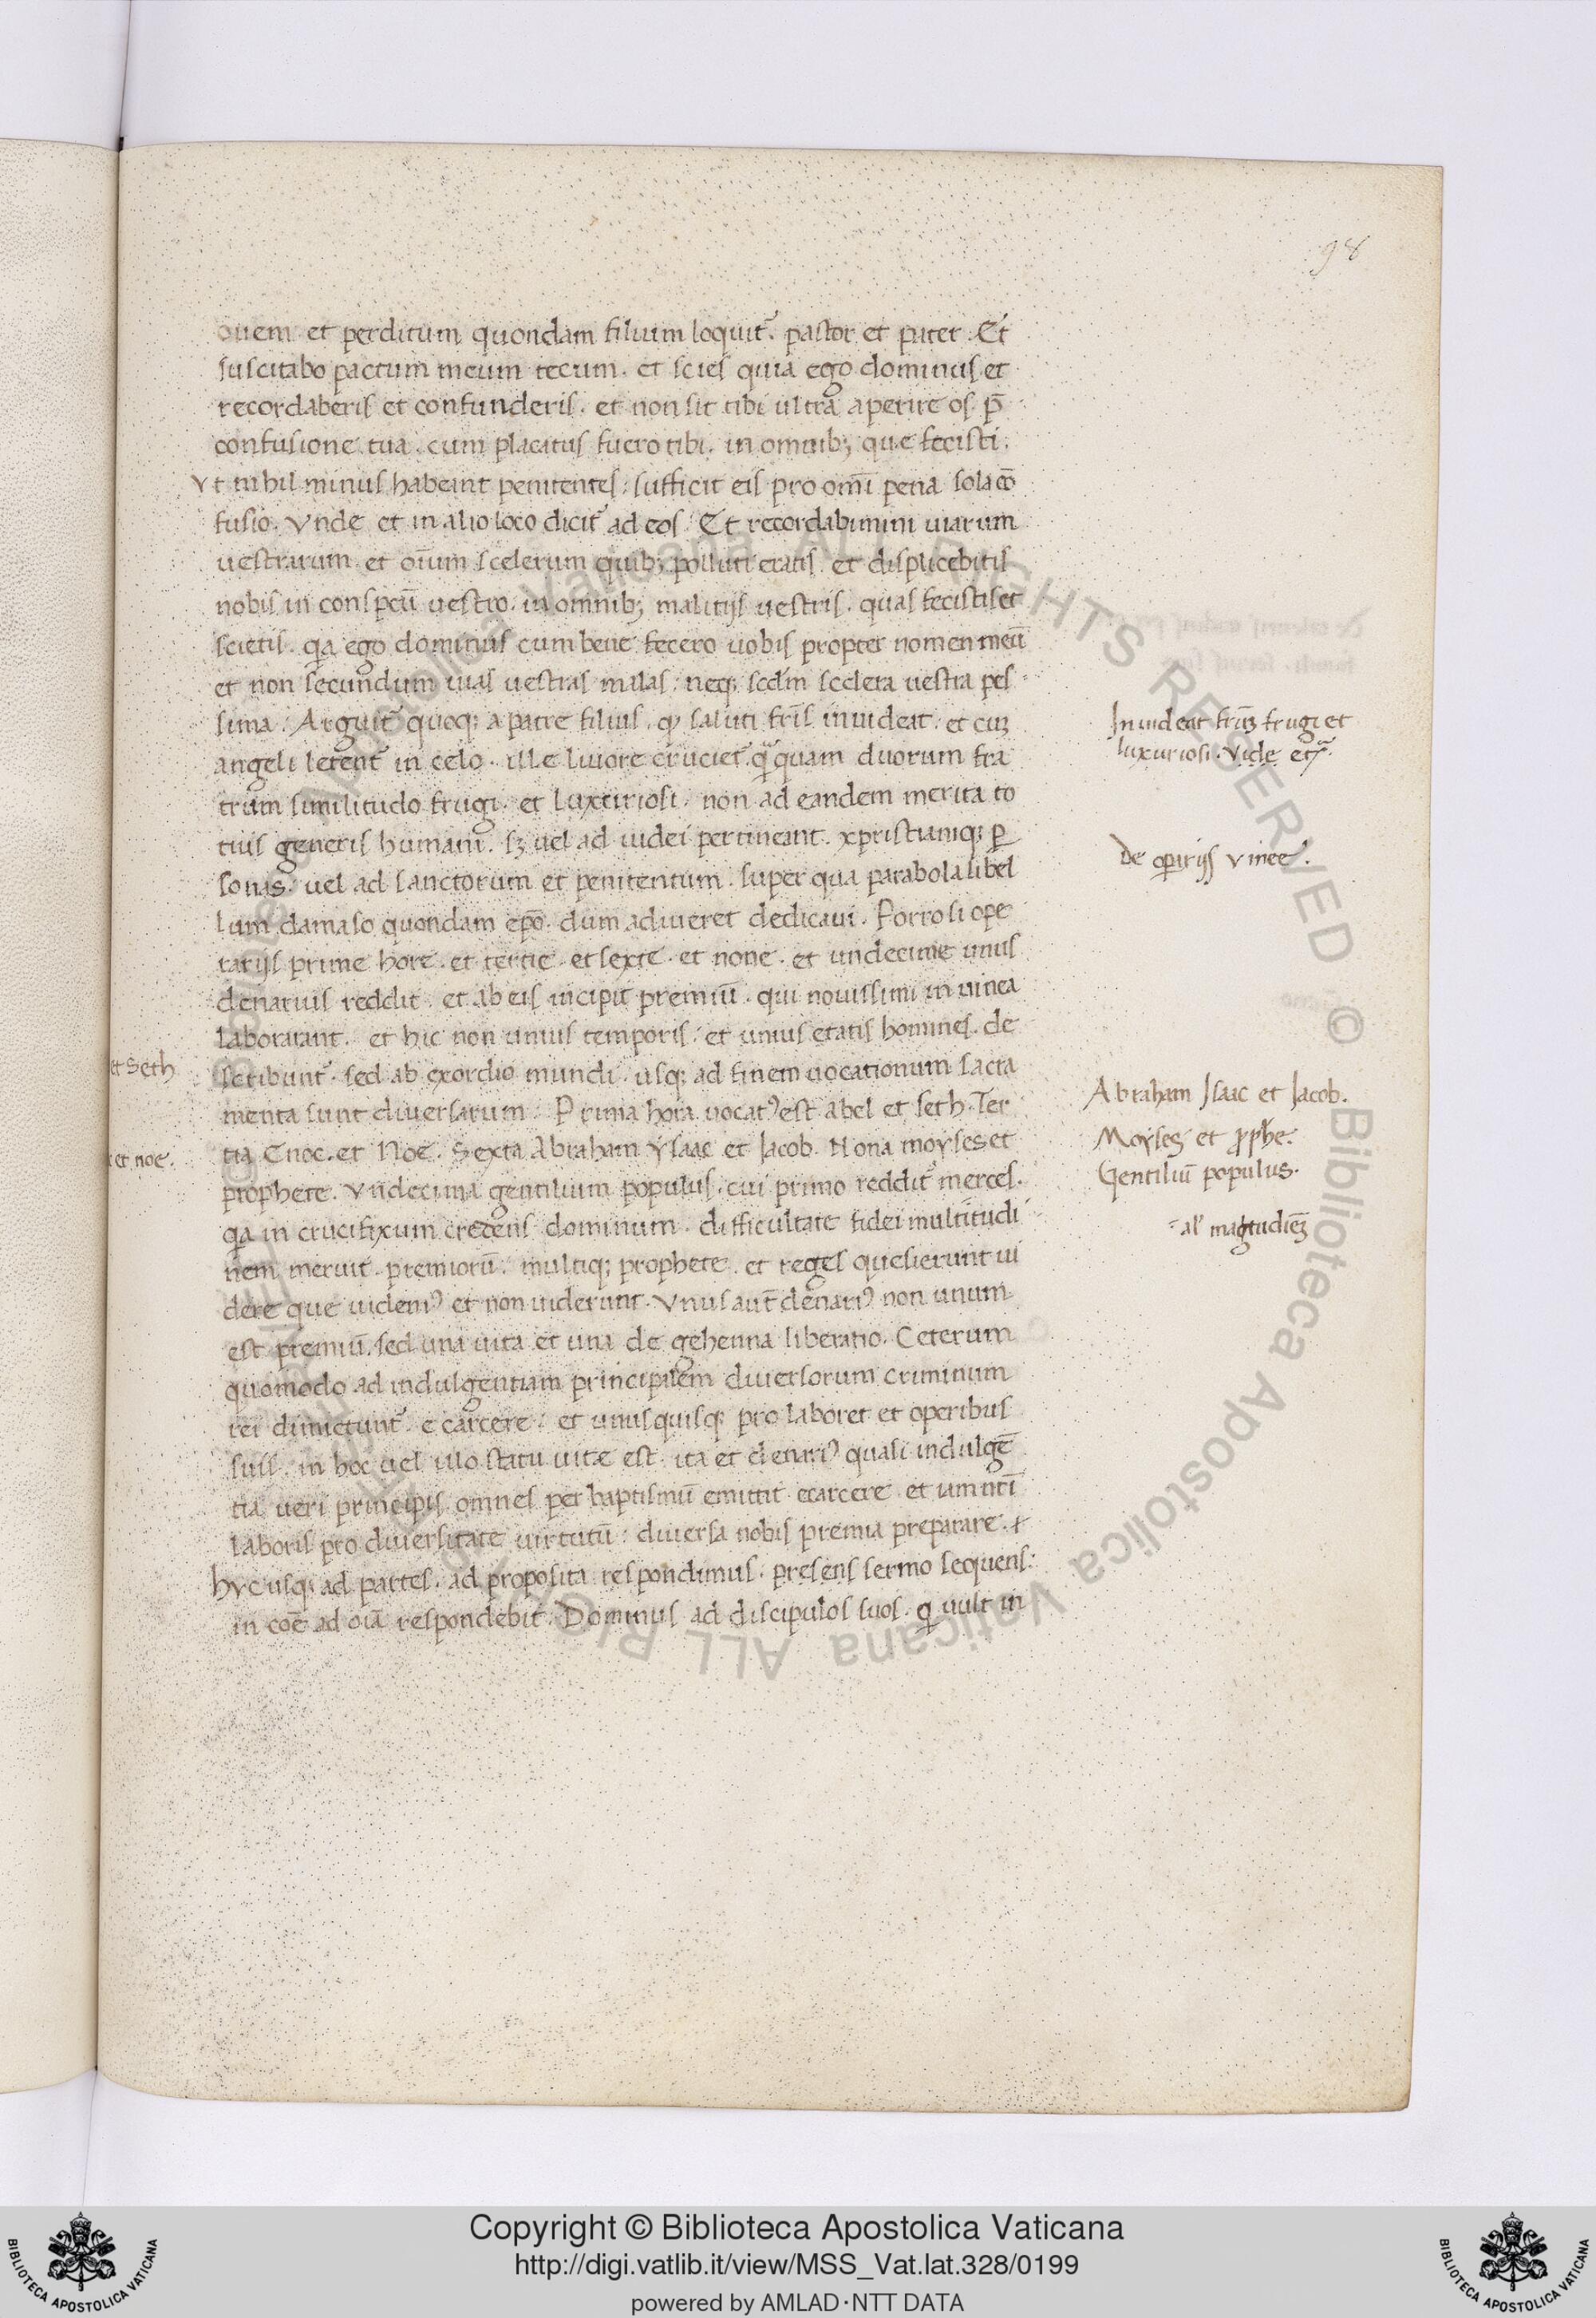 98
ouem et perditum quondam filium loquit᷑. pastor et pater. Et
suscitabo pactum meum tecum. et scies quia ego dominus et
recordaberis et confunderis. et non sit tibi ultra aperire os p̄
confusione tua. cum placatus fuero tibi. in omnib; que fecisti.
Vt nihil minus habeant penitentes. sufficit eis pro om̄i pena sola cō
fusio. Vnde et in alio loco dicit᷑ ad eos. Et recordabimini uiarum
uestrarum et oīum scelerum quib; polluti eratis et displicebitis
nobis in conspcū uestro. in omnib; malitijs uestris. quas fecistis et
scietis. qa ego dominus cum bene fecero uobis propter nomen meū
et non secundum uias uestras malas. neq; scdm̄ scelera uestra pes-
sima. Arguit᷑ quoq; a patre filius. qꝫ saluti fris̄ inuideat. et cuꝫ
angeli letent᷑ in celo. ille liuore cruciet᷑. qᷓquam duorum fra
trum similitudo frugi. et luxuriosi. non ad eandem merita to
tius generis humani. sꝫ uel ad iudei pertineant. xpristianiq; ꝑ
sonas. uel ad sanctorum et penitentum. super qua parabola libel
lum damaso quondam ep̄o. dum adiueret dedicaui. Porro si ope
rarijs prime hore. et tertie. et sexte. et none. et undecime unus
denarius reddit. et ab eis incipit premiū. qui nouissimi in uinea
laborarant. et hic non unius temporis. et unius etatis homines. de
scribunt᷑. sed ab exordio mundi. usq; ad finem uocationum sacra
menta sunt diuersarum. Prima hora uocatꝰ est abel et seth. Ter
tia Enoc. et Noe. Sexta Abraham Ysaac et Jacob. Nona moyses et
prophete. Vndecima gentilium populus. cui primo reddit᷑ merces.
qa in crucifixum credens dominum. difficultate fidei multitudi
nem meruit premiorū. multiq; prophete. et reges quesierunt ui
dere que uidemꝰ et non uiderunt. Vnus aut̄ denariꝰ non unum
est premiū. sed una uita et una de gehenna liberatio. Ceterum
quomodo ad indulgentiam principalem diuersorum criminum
rei dimictunt᷑ e carcere. et unusquisq; pro laboret et operibus
suis. in hoc uel illo statu uitæ est. ita et denariꝰ quasi indulgē
tia ueri principis omnes per baptismū emittit ecarcere et
laboris pro diuersitate uirtutū. diuersa nobis premia preparare.
hvcusq; ad partes. ad proposita respondimus. presens sermo sequens.
in coē ad oīa respondebit. Dominus ad discipulos suos. q uult in
Inuideat frūꝫ frugi et
luxuriosi. Vide
de oꝑirijs vinee.
et Seth
et noe.
Abraham Isaac et Jacob.
Moyses et ꝓphe.
Gentiliū populus.
al' magtudiēꝫ
Copyright © Biblioteca Apostolica Vaticana
http://digi.vatlib.it/view/MSS_Vat.lat.328/0199
powered by AMLAD·NTT DATA
BIBLIOTECA APOSTOLICA VATICANA
BIBLIOTECA APOSTOLICA VATICANA